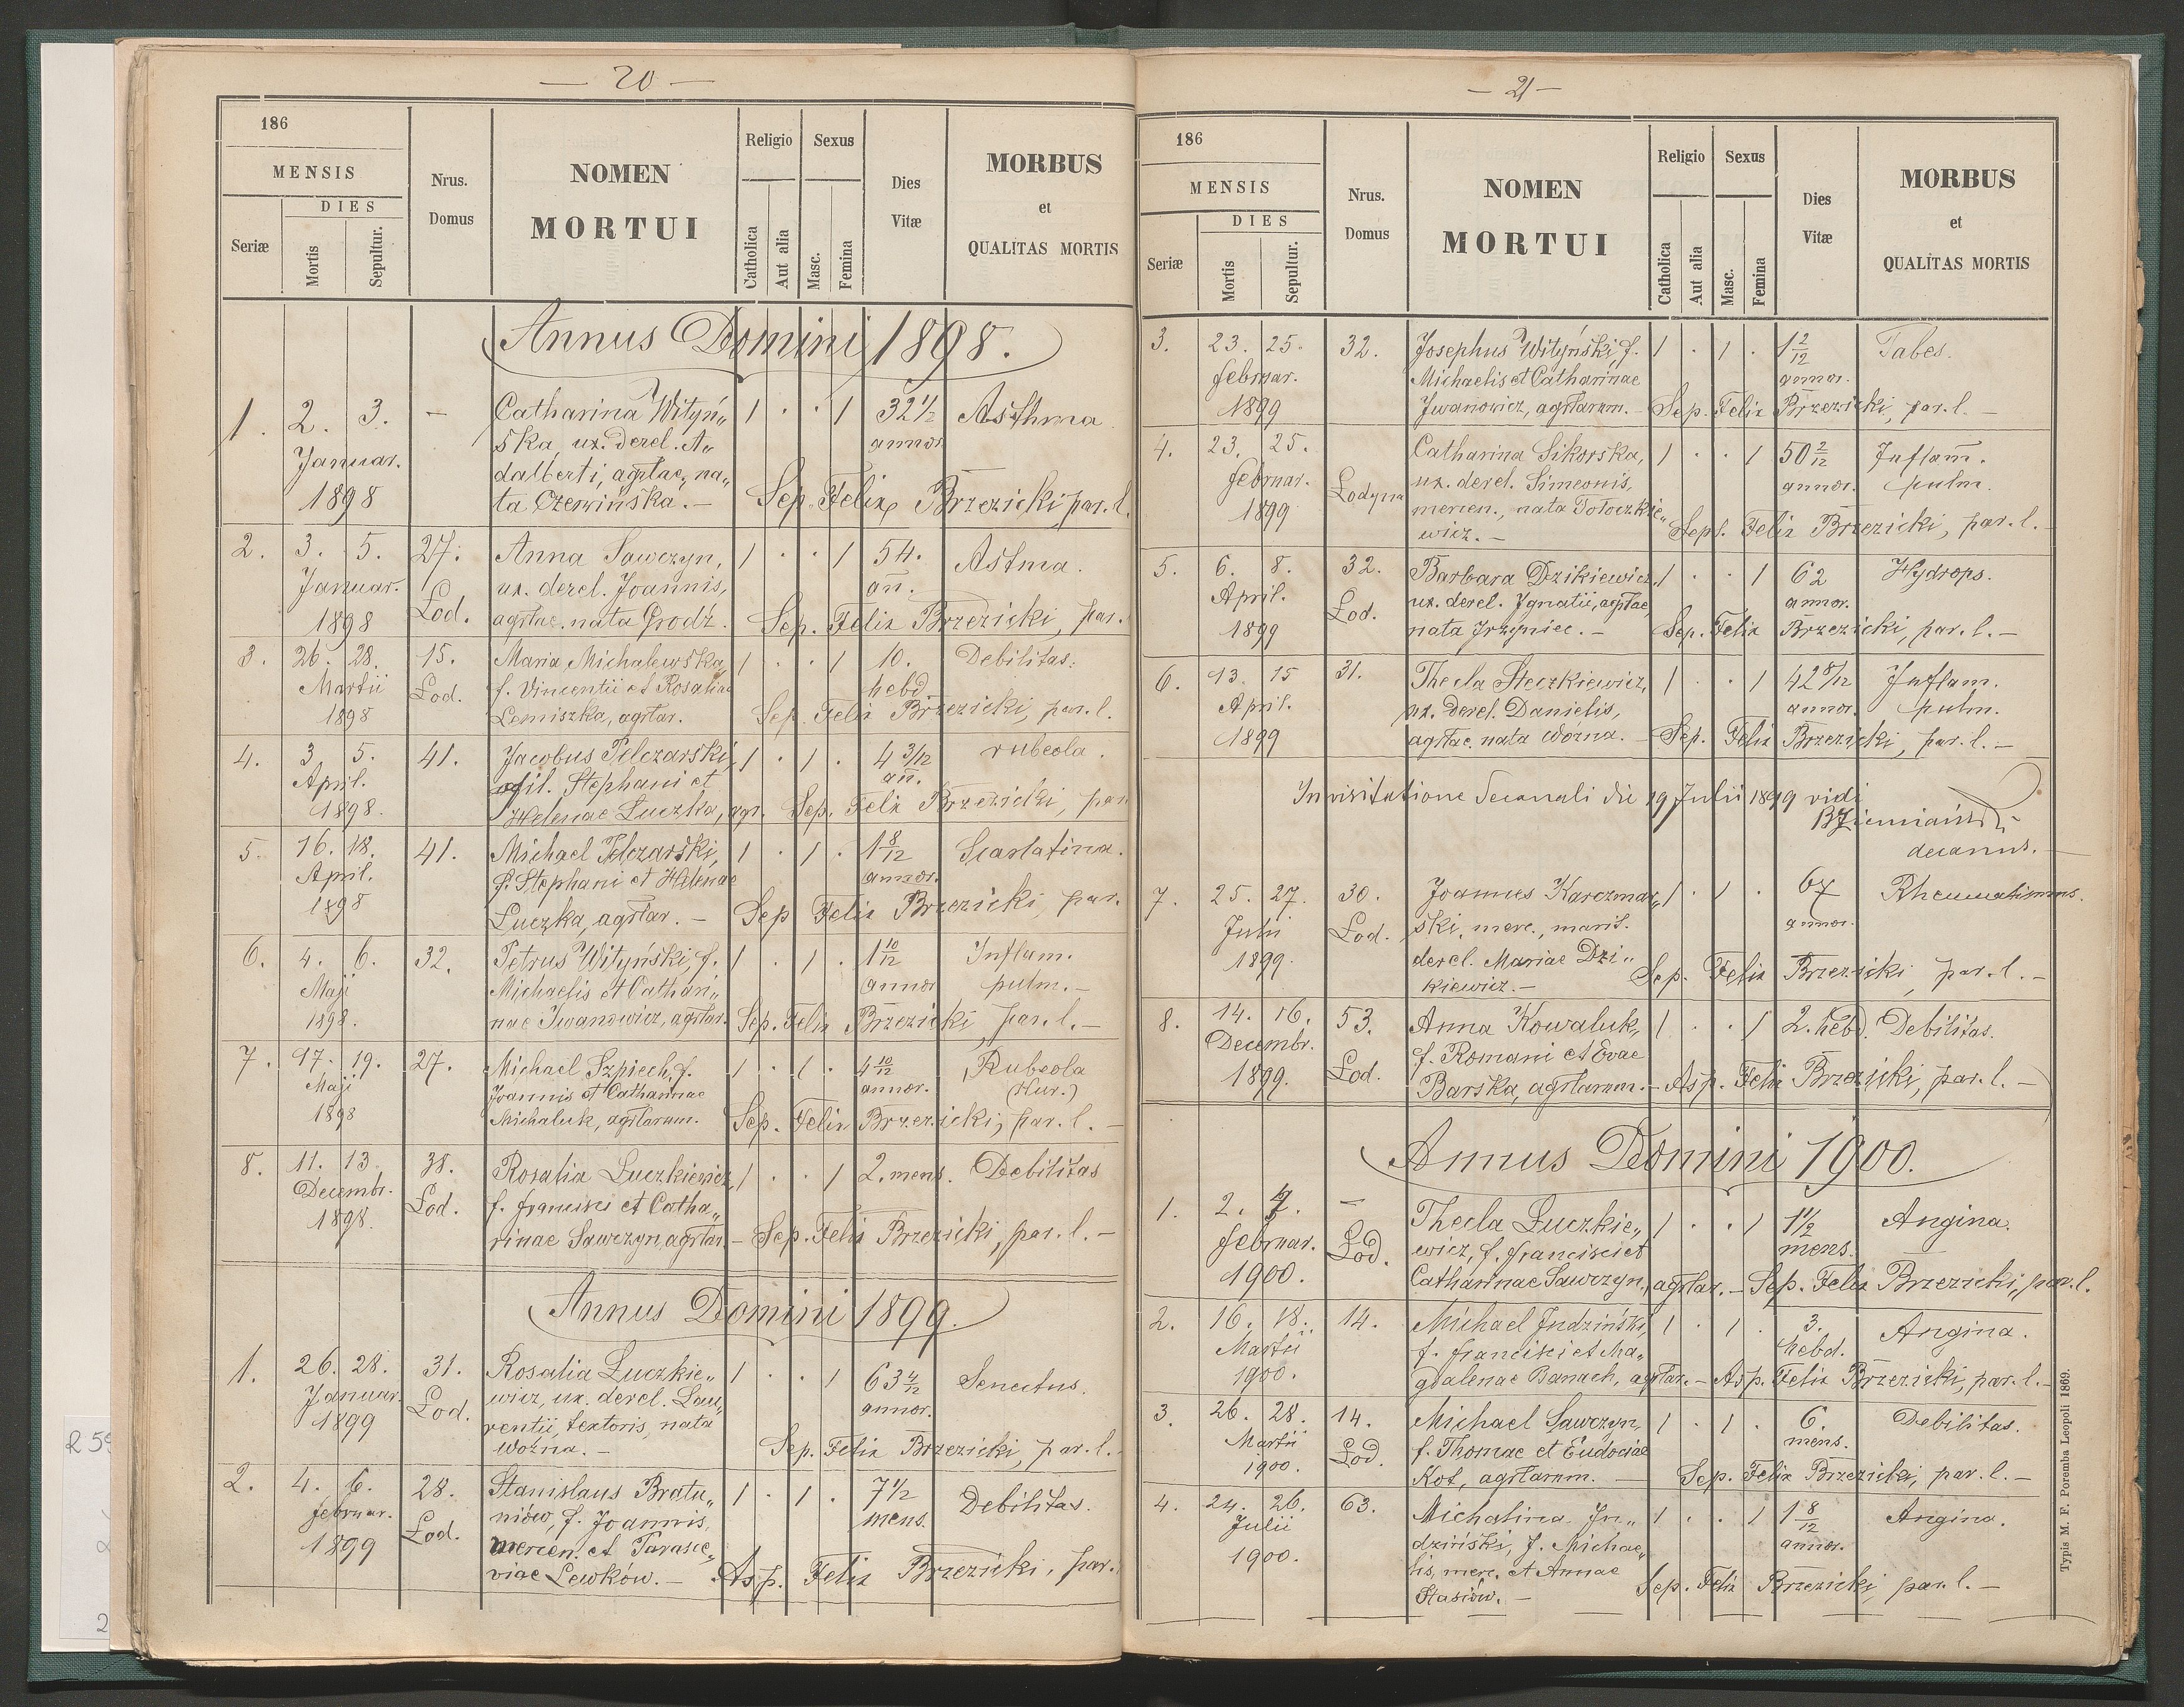 — 20 —
186
MENSIS
DIES
Seriæ
Mortis
Sepultur.
Nrus. Domus
NOMEN
MORTUI
Religio
Catholica
Aut alia
Sexus
Masc.
Femina
Dies
Vitæ
MORBUS
et
QUALITAS MORTIS
Annus Domini 1898.
1. 2. 3. — Catharina Wityń„ 1 · · 1 32 1/2 Asthma.
Januar. ska, ux. derel. A„ annor.
dalberti, agrlae, na„
1898 ta Czerwińska. — Sep. Felix Brzezicki par. l.
2. 3. 5. 27. Anna Sawczyn, 1 · · 1 54. Astma.
Januar. Lod. ux. derel. Joannis, an̄.
1898 agrlae. nata Grodź. Sep. Felix Brzezicki, par.
3. 26. 28. 15. Maria Michalewska, 1 · · 1 10. Debilitas.
Martii Lod. f. Vincentii et Rosaliae hebd.
1898 Lemiszka, agrlar. Sep. Felix Brzezicki, par. l.
4. 3 5. 41. Jacobus Pelczarski, 1 · 1 · 4 3/12 rubeola.
April. fil. Stephani et an̄.
1898. Helenae Luczka, agr. Sep. Felix Brzezicki, par
5. 16. 18. 41. Michael Pelczarski, 1 · 1 · 1 8/12 Scarlatina.
April. f. Stephani et Helenae annor.
1898 Luczka, agrlar. — Sep Felix Brzezicki, par.
6. 4. 6. 32. Petrus Wityński, f. 1 · 1 · 1 10/12 Inflam.
Maji Michaelis et Cathari„ annor pulm. —
1898. nae Iwanowicz, agrlar. Sep. Felix Brzezicki, par. l. —
7. 17. 19. 27. Michael Szpiech, f. 1 · 1 · 4 10/12 Rubeola
Maji Joannis et Catharinae annor. (Kur.)
1898 Michaluk, agrlarum. Sep. Felix Brzezicki, par. l. —
8. 11. 13. 38. Rosalia Luczkiewicz, 1 · · 1 2. mens. Debilitas
Decembr. Lod. f. Francisci et Catha„
1898. rinae Sawczyn, agrlar. — Sep. Felix Brzezicki, par. l. —
Annus Domini 1899.
1. 26. 28. 31. Rosalia Luczkie„ 1 · · 1 63 4/12 Senectus.
Januar. Lod. wicz, ux. derel. Lau„ annor.
1899 rentii, textoris, nata
Woźna. — Sep. Felix Brzezicki, par. l.
2. 4. 6. 28. Stanislaus Bratu„ 1 · 1 · 7 1/2 Debilitas.
Februar. Lod. niów, f. Joannis, mens.
1899 mercen. et Parasce„
viae Lewków. — Asp. Felix Brzezicki, par.
— 21 —
186
MENSIS
DIES
Seriæ
Mortis
Sepultur.
Nrus. Domus
NOMEN
MORTUI
Religio
Catholica
Aut alia
Sexus
Masc.
Femina
Dies
Vitæ
MORBUS
et
QUALITAS MORTIS
3. 23. 25. 32. Josephus Wityński f. 1 · 1 · 1 2/12 Tabes.
Februar. Michaelis et Catharinae annor.
1899 Iwanowicz, agrlarum. — Sep. Felix Brzezicki, par. l. —
4. 23. 25. Catharina Sikorska, 1 · · 1 50 2/12 Inflam̄.
Februar. Lodyna ux. derel. Simeonis, annor. pulm.
1899 mercen., nata Toloczkie„
wicz. — Sep. Felix Brzezicki, par. l. —
5. 6. 8. 32. Barbara Dzikiewicz, 1 · · 1 62 Hydrops.
April. Lod. ux. derel. Ignatii, agrlae, annor.
1899 nata Irzyniec. — Sep. Felix Brzezicki, par. l. —
6. 13. 15 31. Thecla Steczkiewicz, 1 · · 1 42 8/12 Inflam.
April. ux. derel. Danielis, annor. pulm.
1899 agrlae. nata Woźna. — Sep. Felix Brzezicki, par. l. —
In visitatione decanali die 19 Julii 1899 vidi
decanus.
7. 25. 27. 30. Joannes Karczmar„ 1 · 1 · 67 Rheumatismus.
Julii Lod. ski, merc., marit. annor.
1899. derel. Mariae Dzi„
kiewicz. — Sep. Felix Brzezicki, par. l. —
8. 14. 16. 53. Anna Kowaluk, 1 · · 1 2. hebd. Debilitas.
Decembr. Lod. f. Romani et Evae
1899. Barska, agrlarum. — Asp. Felix Brzezicki, par. l. —
Annus Domini 1900.
1. 2. 4. — Thecla Luczkie„ 1 · · 1 1 1/2 Angina.
Februar. Lod. wicz, f. Francisci et mens.
1900. Catharinae Sawczyn, agrlar. — Sep. Felix Brzezicki, par. l.
2. 16. 18. 14. Michael Indziński, 1 · 1 · 3. Angina.
Martii f. Francisci et Ma„ hebd.
1900. gdalenae Banach, agrlar. — Asp. Felix Brzezicki, par. l. —
3. 26. 28. 14. Michael Sawczyn, 1 · 1 · 6. Debilitas.
Martii Lod. f. Thomae et Eudociae mens.
1900. Kot, agrlarum. — Sep. Felix Brzezicki, par. l. —
4. 24. 26. 63. Michalina In„ 1 · · 1 1 8/12 Angina.
Julii dziński, f. Michae„ annor.
1900. lis, merc. et Annae
Stasiów. — Sep. Felix Brzezicki, par. l. —
Typis M. F. Poremba Leopoli 1869.